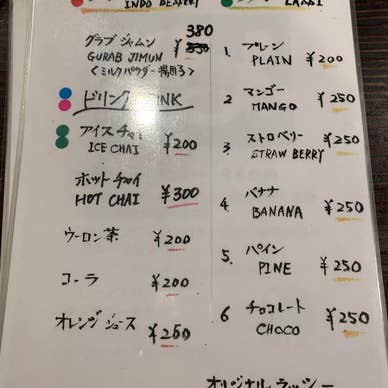 INDO DESSERT
グラブ ジャムン
GURAB JIMUN
¥ 380
<ミルクパウダー揚団子>
ドリンク
アイスチャイ
ICE CHAI
¥200
ホットチャイ
HOT CHAI
¥300
ウーロン茶 ¥200
コーラ ¥200
オレンジジュース ¥250
LASSI
1. プレーン
PLAIN
¥200
2 マンゴー
MANGO
¥250
3 ストロベリー
STRAW BERRY
¥250
4. バナナ
BANANA
¥250
5. パイン
PINE
¥250
6 チョコレート
CHOCO
¥250
オリジナル ラッシー